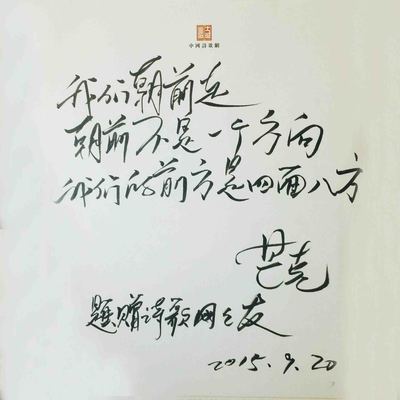 中國詩歌網
我们朝前走
朝前不是一个方向
我们的前方是四面八方
芒克
题赠诗歌网之友
2015.9.20